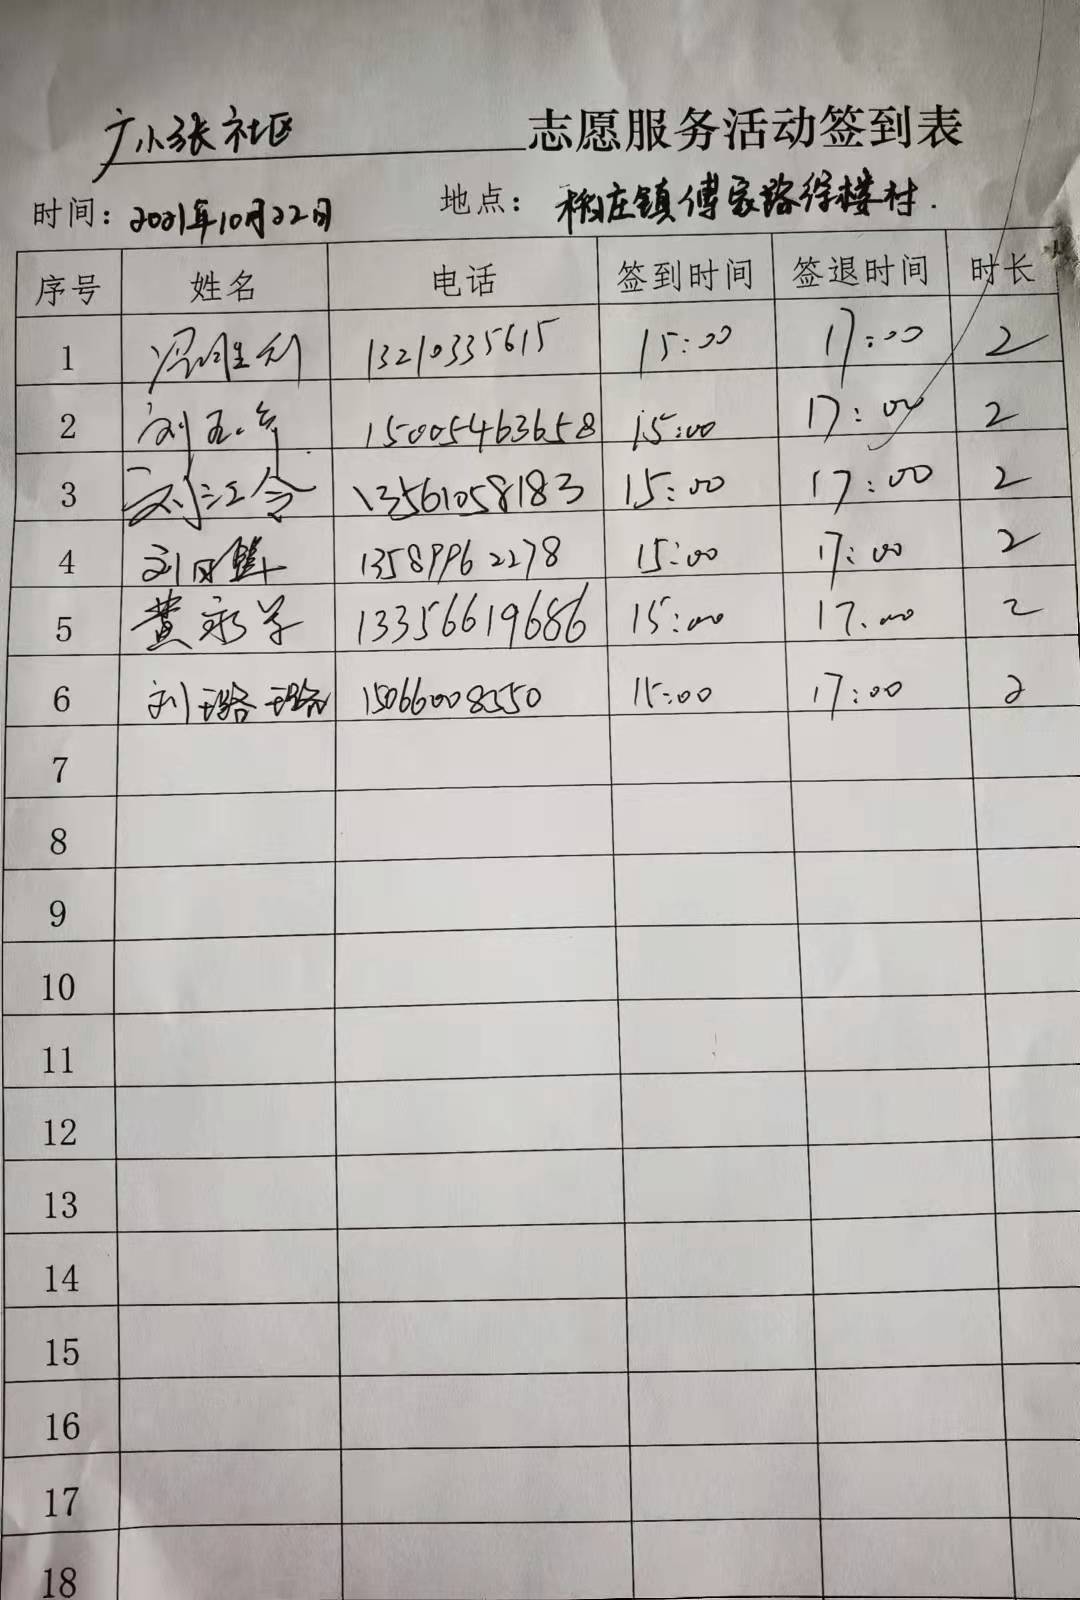 广小张社区 志愿服务活动签到表
时间：2021年10月22日 地点：杨庄镇傅家路徐楼村.
序号 姓名 电话 签到时间 签退时间 时长
1 冯胜利 13210335615 15:00 17:00 2
2 刘 15005463658 15:00 17:00 2
3 刘江令 13561058183 15:00 17:00 2
4 刘 13589962278 15:00 17:00 2
5 黄永学 13356619686 15:00 17:00 2
6 刘璐璐 15066008550 15:00 17:00 2
7
8
9
10
11
12
13
14
15
16
17
18